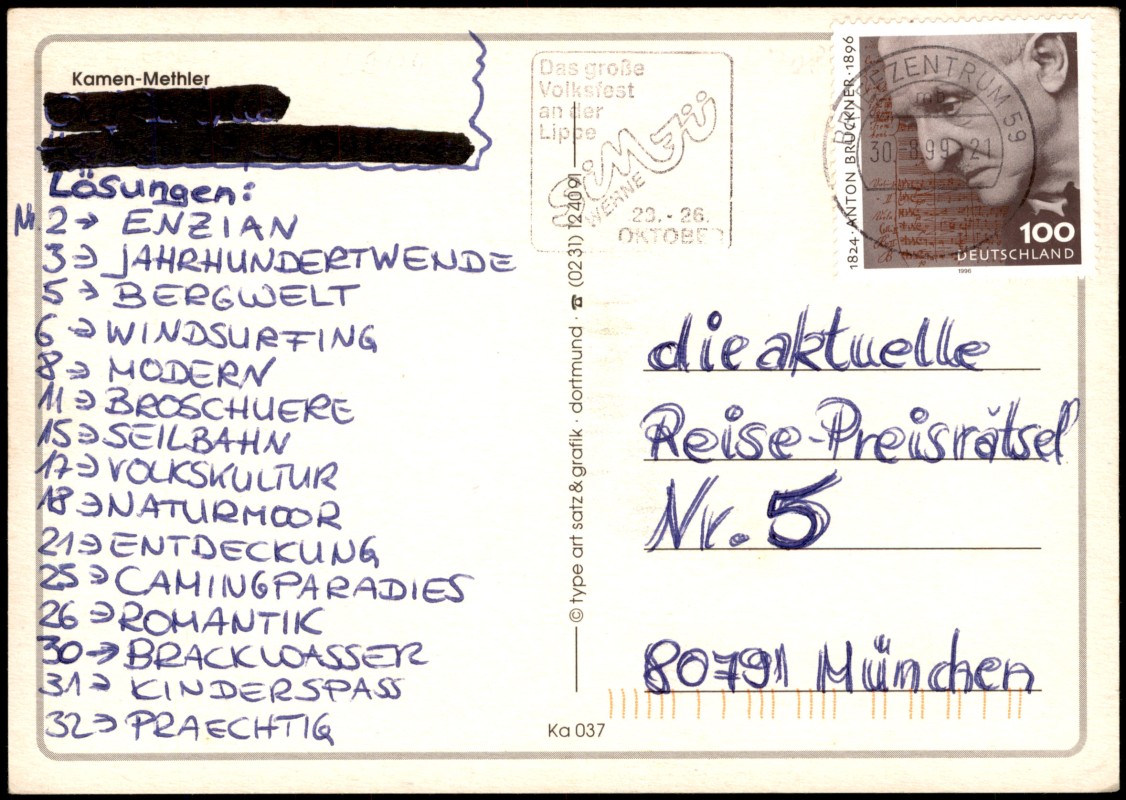 Kamen-Methler
Lösungen:
Nr. 2 → ENZIAN
3 → JAHRHUNDERTWENDE
5 → BERGWELT
6 → WINDSURFING
8 → MODERN
11 → BROSCHUERE
15 → SEILBAHN
17 → VOLKSKULTUR
18 → NATURMOOR
21 → ENTDECKUNG
25 → CAMINGPARADIES
26 → ROMANTIK
30 → BRACKWASSER
31 → KINDERSPASS
32 → PRAECHTIG
Das große
Volksfest
an der
Lippe
SiMJü
WERNE
23. - 26.
OKTOBER
© type art satz & grafik · dortmund · ☎ (0231) 124091
Ka 037
1824 · ANTON BRUCKNER · 1896
100
DEUTSCHLAND
1996
BRIEFZENTRUM 59
30.-8.99-21
die aktuelle
Reise-Preisrätsel
Nr. 5
80791 München